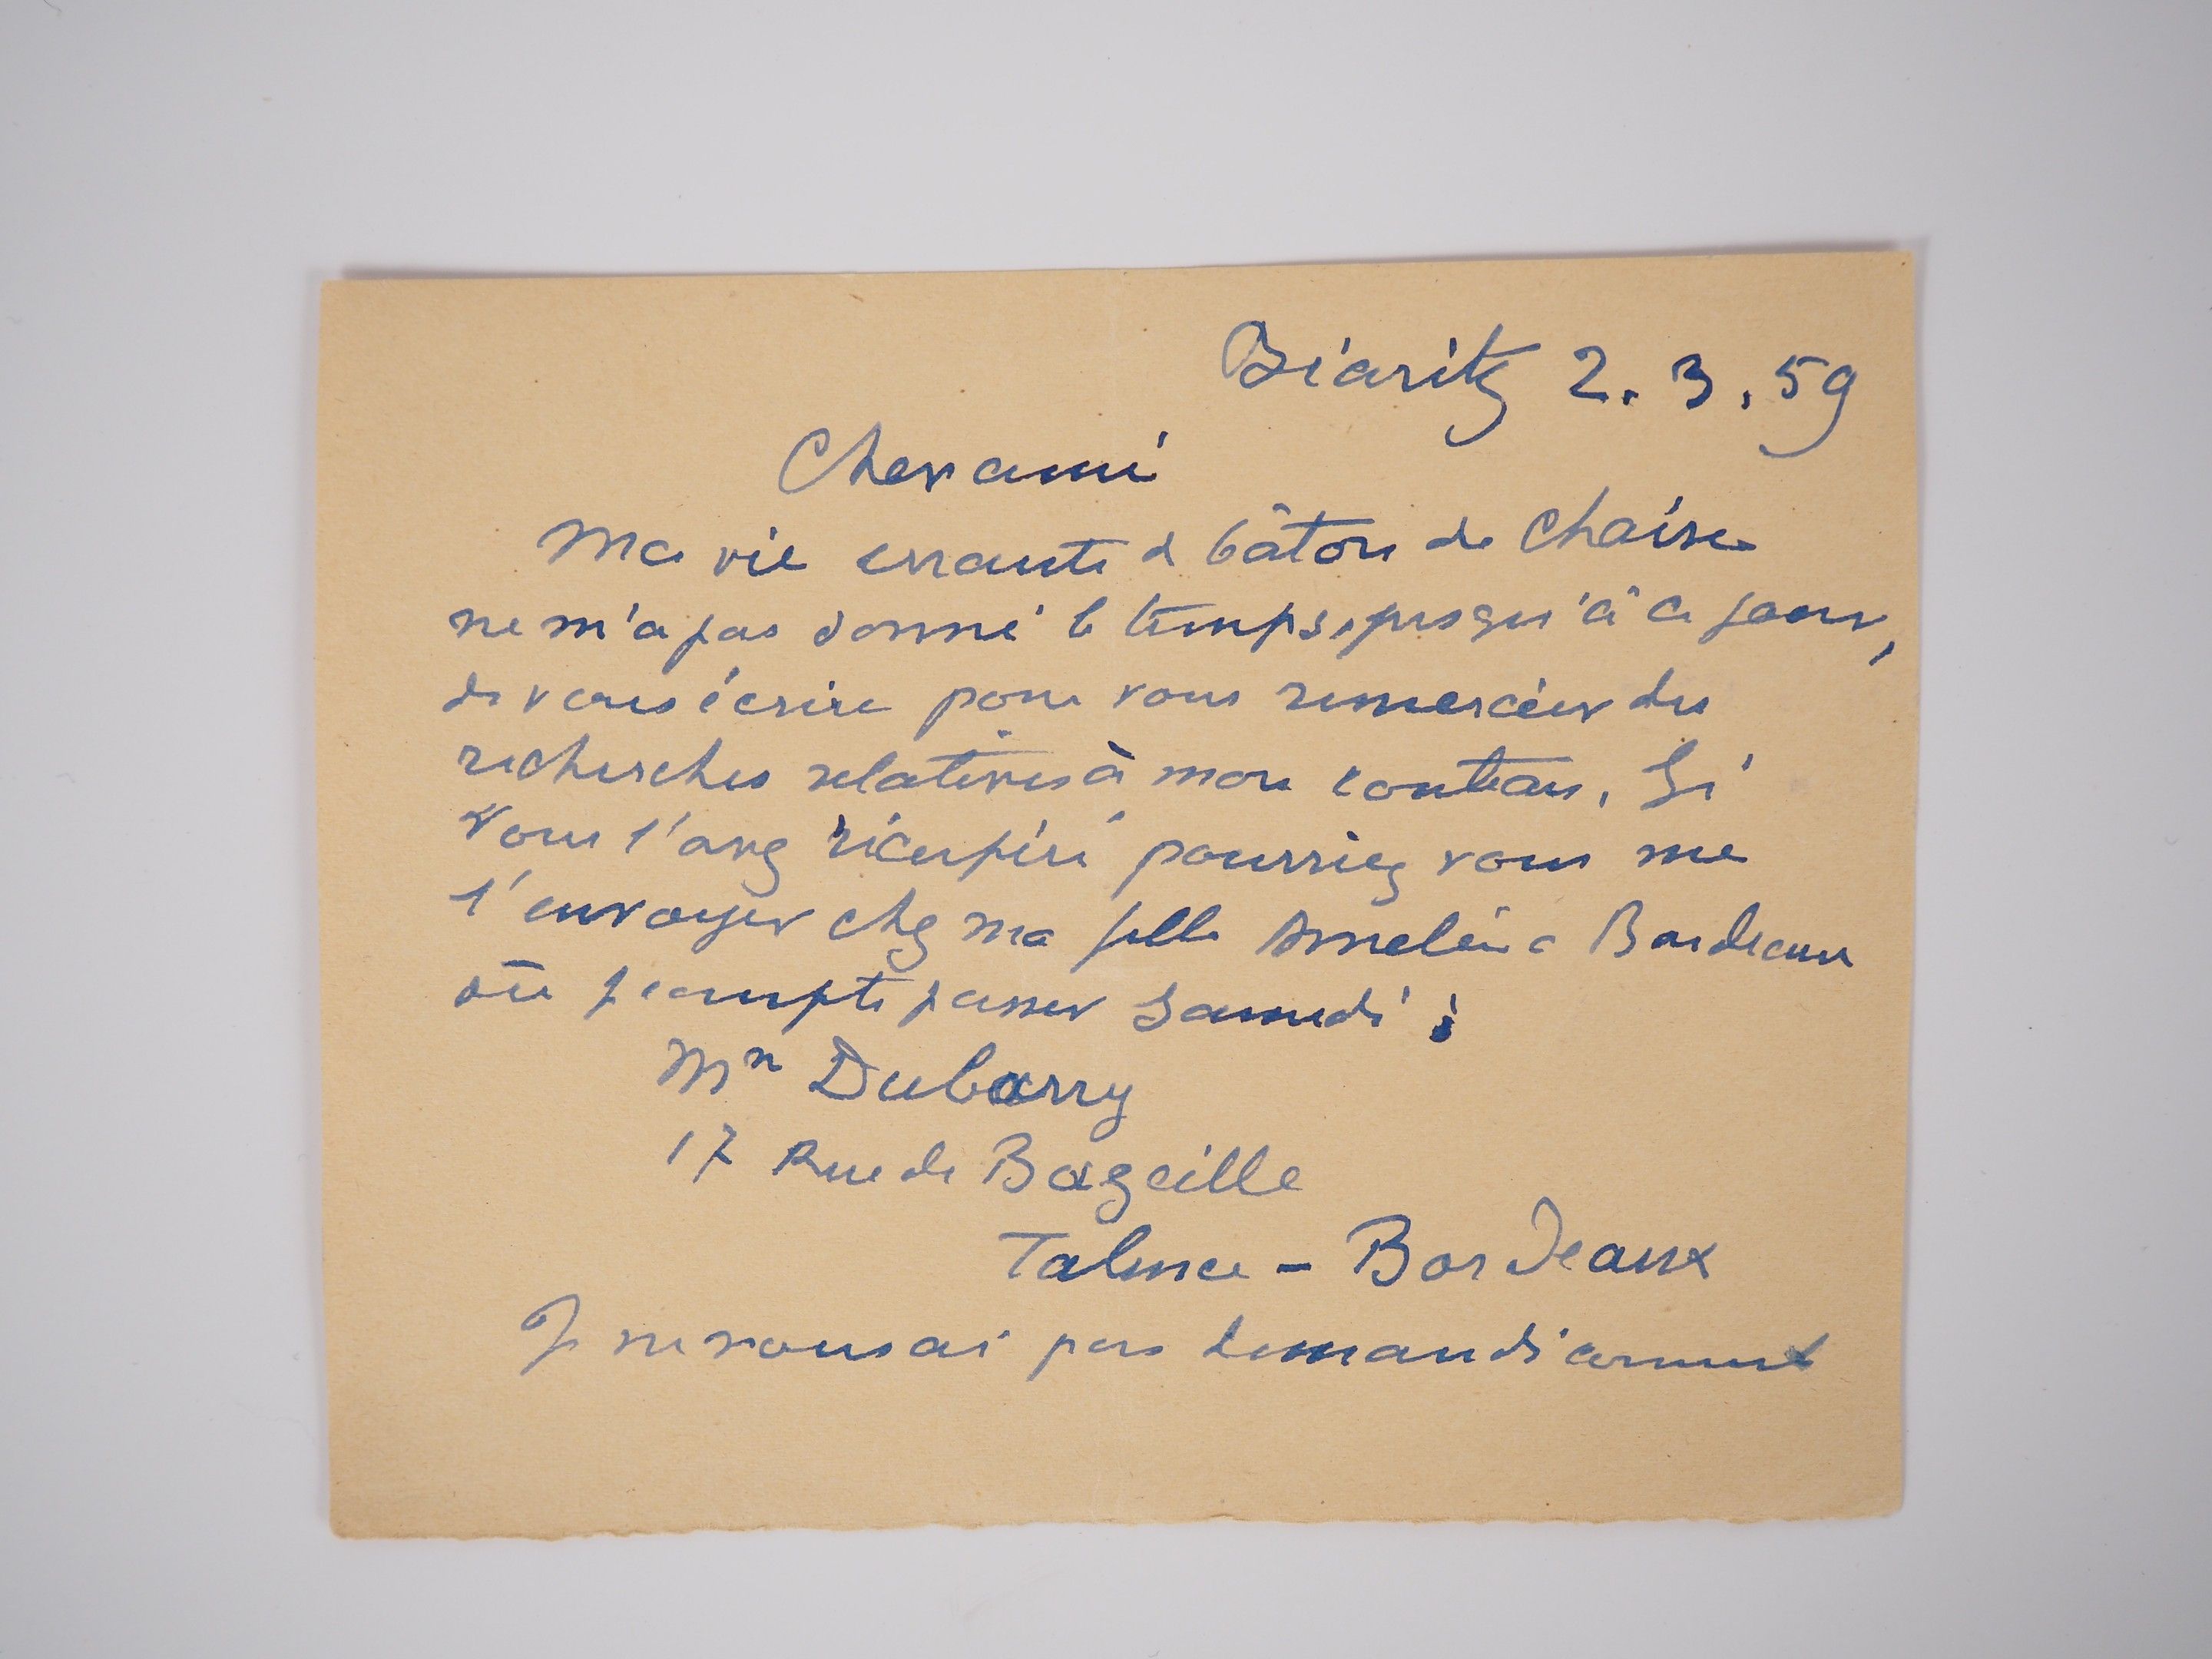 Biaritz 2.3.59
Cher ami
Ma vie errante de bâton de chaise
ne m'a pas donné le temps, jusqu'à ce jour,
de vous écrire pour vous remercier des
recherches relatives à mon couteau. Si
vous l'avez récupéré pourriez vous me
l'envoyer chez ma fille Amélie a Bordeaux
où je compte passer Samedi :
Mr Dubarry
17 Rue de Bazeille
Talence - Bordeaux
Je ne vous ai pas demandé comment